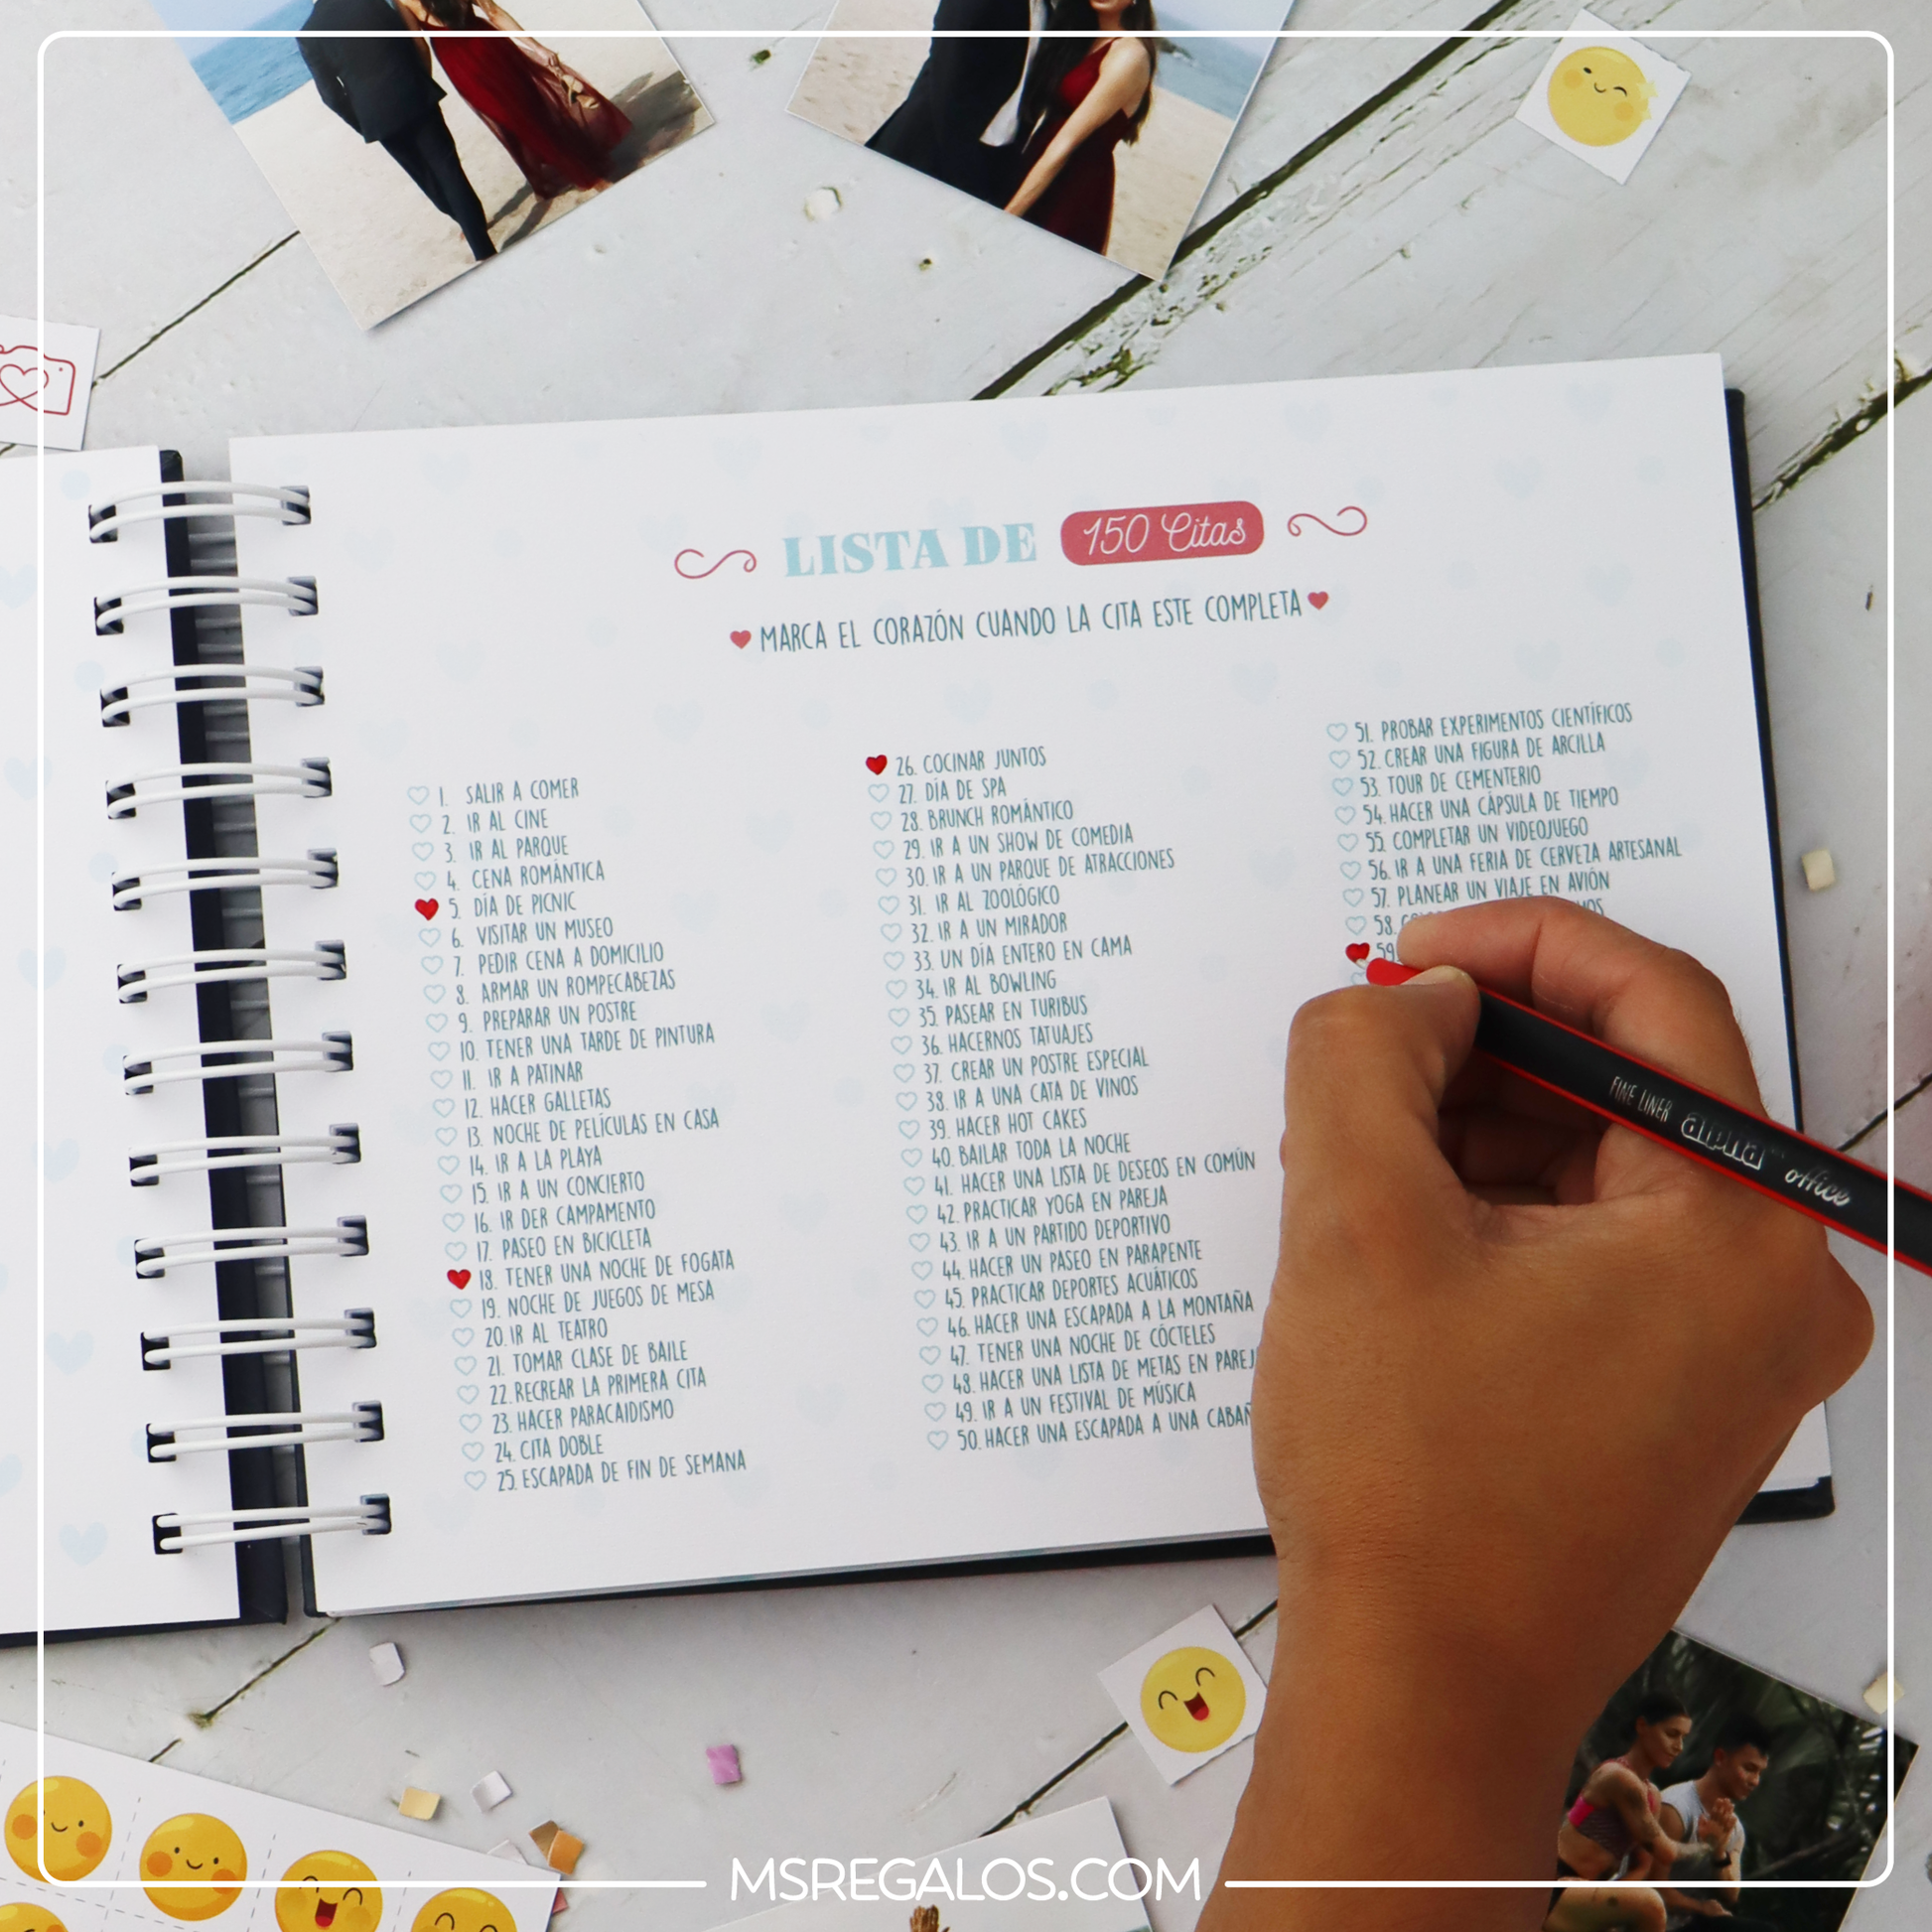 LISTA DE 150 Citas
MARCA EL CORAZÓN CUANDO LA CITA ESTE COMPLETA
1. SALIR A COMER
2. IR AL CINE
3. IR AL PARQUE
4. CENA ROMÁNTICA
5. DÍA DE PICNIC
6. VISITAR UN MUSEO
7. PEDIR CENA A DOMICILIO
8. ARMAR UN ROMPECABEZAS
9. PREPARAR UN POSTRE
10. TENER UNA TARDE DE PINTURA
11. IR A PATINAR
12. HACER GALLETAS
13. NOCHE DE PELÍCULAS EN CASA
14. IR A LA PLAYA
15. IR A UN CONCIERTO
16. IR DER CAMPAMENTO
17. PASEO EN BICICLETA
18. TENER UNA NOCHE DE FOGATA
19. NOCHE DE JUEGOS DE MESA
20. IR AL TEATRO
21. TOMAR CLASE DE BAILE
22. RECREAR LA PRIMERA CITA
23. HACER PARACAIDISMO
24. CITA DOBLE
25. ESCAPADA DE FIN DE SEMANA
26. COCINAR JUNTOS
27. DÍA DE SPA
28. BRUNCH ROMÁNTICO
29. IR A UN SHOW DE COMEDIA
30. IR A UN PARQUE DE ATRACCIONES
31. IR AL ZOOLÓGICO
32. IR A UN MIRADOR
33. UN DÍA ENTERO EN CAMA
34. IR AL BOWLING
35. PASEAR EN TURIBUS
36. HACERNOS TATUAJES
37. CREAR UN POSTRE ESPECIAL
38. IR A UNA CATA DE VINOS
39. HACER HOT CAKES
40. BAILAR TODA LA NOCHE
41. HACER UNA LISTA DE DESEOS EN COMÚN
42. PRACTICAR YOGA EN PAREJA
43. IR A UN PARTIDO DEPORTIVO
44. HACER UN PASEO EN PARAPENTE
45. PRACTICAR DEPORTES ACUÁTICOS
46. HACER UNA ESCAPADA A LA MONTAÑA
47. TENER UNA NOCHE DE CÓCTELES
48. HACER UNA LISTA DE METAS EN PAREJ
49. IR A UN FESTIVAL DE MÚSICA
50. HACER UNA ESCAPADA A UNA CABAÑ
51. PROBAR EXPERIMENTOS CIENTÍFICOS
52. CREAR UNA FIGURA DE ARCILLA
53. TOUR DE CEMENTERIO
54. HACER UNA CÁPSULA DE TIEMPO
55. COMPLETAR UN VIDEOJUEGO
56. IR A UNA FERIA DE CERVEZA ARTESANAL
57. PLANEAR UN VIAJE EN AVIÓN
58.
59
FINE LINER alpha office
MSREGALOS.COM